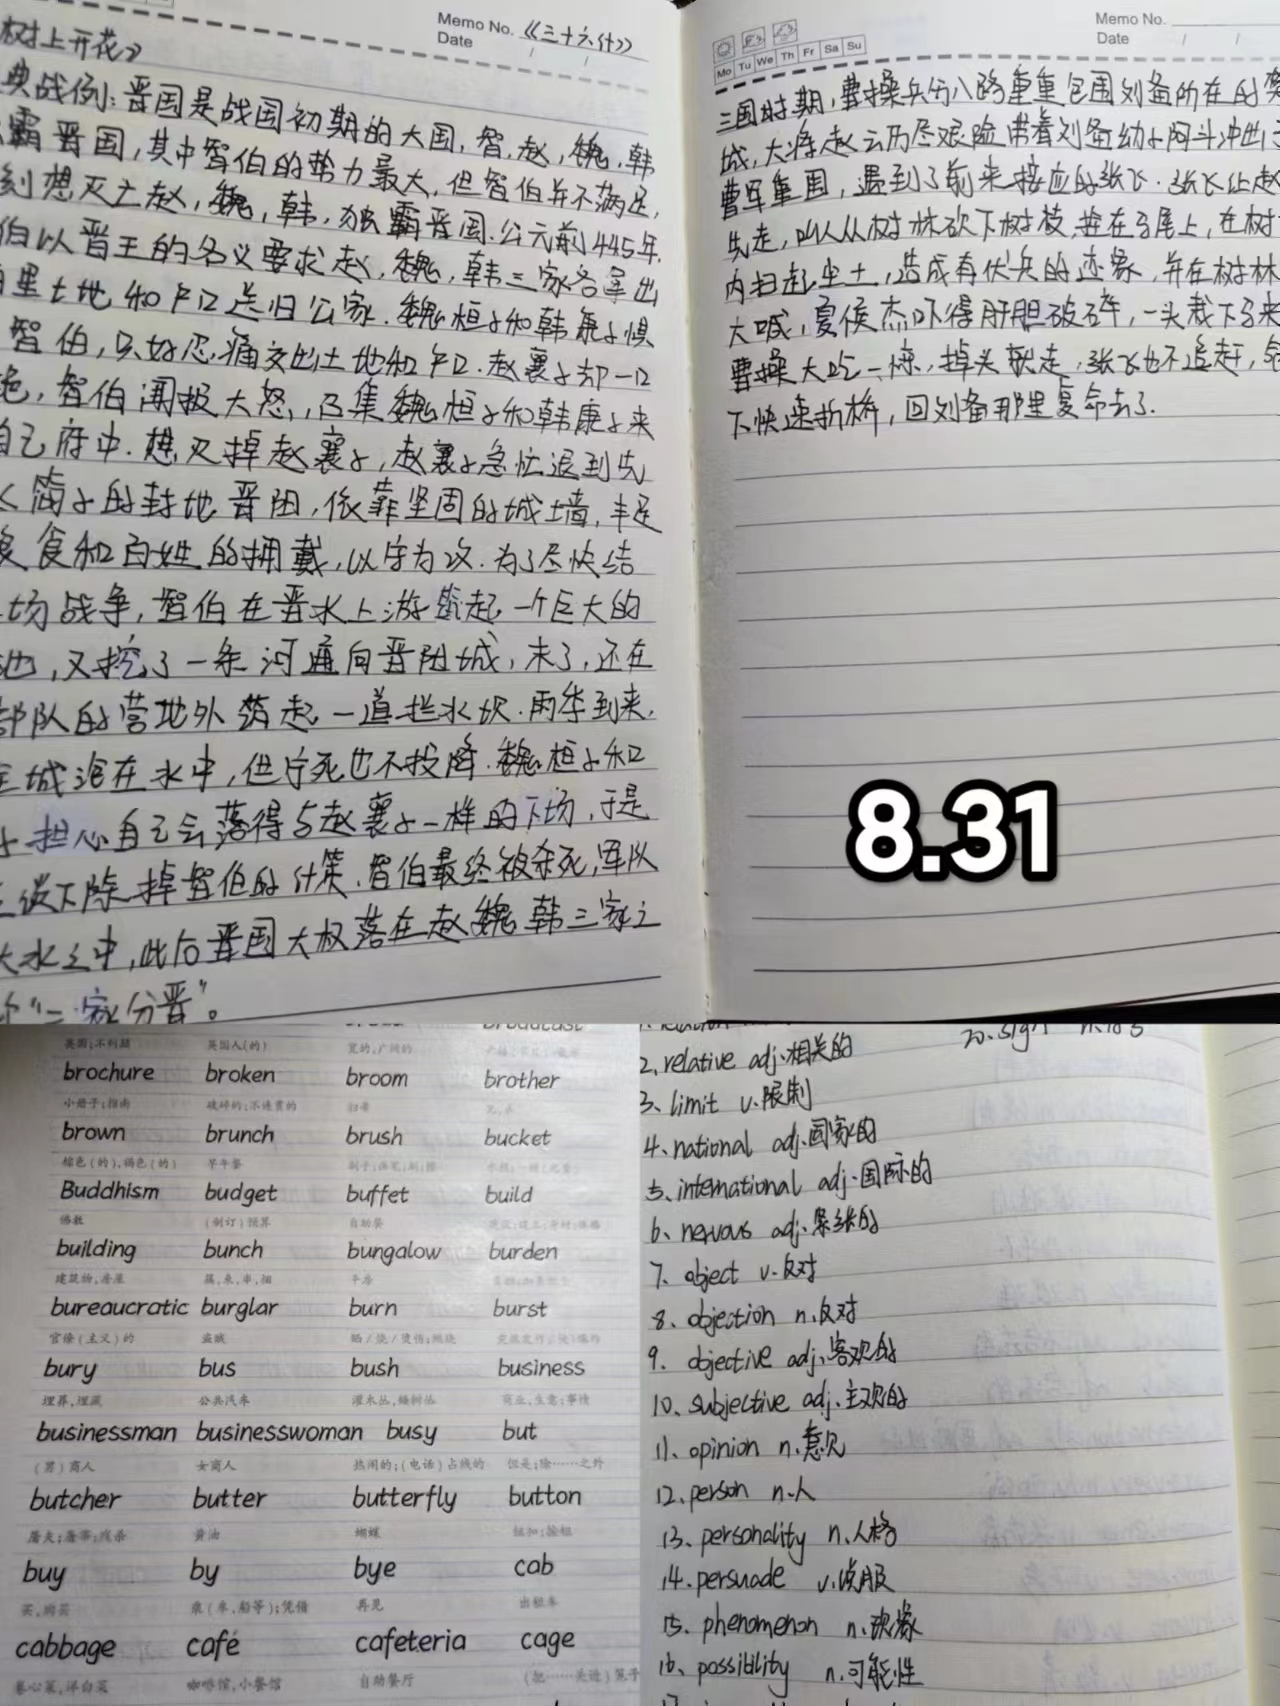 Memo No. 《三十六计》
Date / /
树上开花》
典战例:晋国是战国初期的大国,智,赵,魏,韩
霸晋国,其中智伯的势力最大,但智伯并不满足,
刻想灭亡赵,魏,韩,独霸晋国.公元前445年.
伯以晋王的名义要求赵,魏,韩三家各拿出
里土地和户口送归公家.魏桓子和韩康子惧
智伯,只好忍痛交出土地和户口.赵襄子却一口
绝,智伯闻报大怒,召集魏桓子和韩康子来
自己府中.想灭掉赵襄子,赵襄子急忙退到先
简子的封地晋阳,依靠坚固的城墙,丰足
食和百姓的拥戴,以守为攻.为了尽快结
场战争,智伯在晋水上游筑起一个巨大的
池,又挖了一条河通向晋阳城,末了,还在
部队的营地外筑起一道拦水坝.雨季到来,
全城泡在水中,但宁死也不投降.魏桓子和
子担心自己会落得与赵襄子一样的下场,于是
下除掉智伯的计策.智伯最终被杀死,军队
大水之中,此后晋国大权落在赵魏韩三家之
"三家分晋"。
Memo No.
Date / /
Mo Tu We Th Fr Sa Su
三国时期,曹操兵分八路重重包围刘备所在的樊
城,大将赵云历尽艰险带着刘备幼子阿斗冲出了
曹军重围,遇到了前来接应的张飞.张飞让赵
先走,叫人从树林砍下树枝,拴在马尾上,在树
内扫起尘土,造成有伏兵的迹象,并在树林
大喊,夏侯杰吓得肝胆破碎,一头栽下马来
曹操大吃一惊,掉头就走,张飞也不追赶,命
下快速拆桥,回刘备那里复命去了.
8.31
英国;不列颠 英国人(的) 宽的,广阔的
brochure broken broom brother
小册子;指南 破碎的;不连贯的 扫帚
brown brunch brush bucket
棕色(的),褐色(的) 早午餐
Buddhism budget buffet build
佛教 (制订)预算 自助餐
building bunch bungalow burden
建筑物;房屋 簇,束,串,捆 平房
bureaucratic burglar burn burst
官僚(主义)的 盗贼
bury bus bush business
埋葬,埋藏 公共汽车 灌木丛,矮树丛 商业,生意;事情
businessman businesswoman busy but
(男)商人 女商人 热闹的;(电话)占线的 但是;除……之外
butcher butter butterfly button
屠夫;屠宰;残杀 黄油 蝴蝶 纽扣;按钮
buy by bye cab
买,购买 乘(车,船等);凭借 再见 出租车
cabbage café cafeteria cage
卷心菜,洋白菜 咖啡馆,小餐馆 自助餐厅
20.sign
2、relative adj.相关的
3、limit v.限制
4.national adj.国家的
5、international adj.国际的
6、nervous adj.紧张的
7、object v.反对
8、objection n.反对
9. objective adj.客观的
10、subjective adj.主观的
11、opinion n.意见
12.person n.人
13、personality n.人格
14.persuade v.说服
15、phenomenon n.现象
16、possibility n.可能性